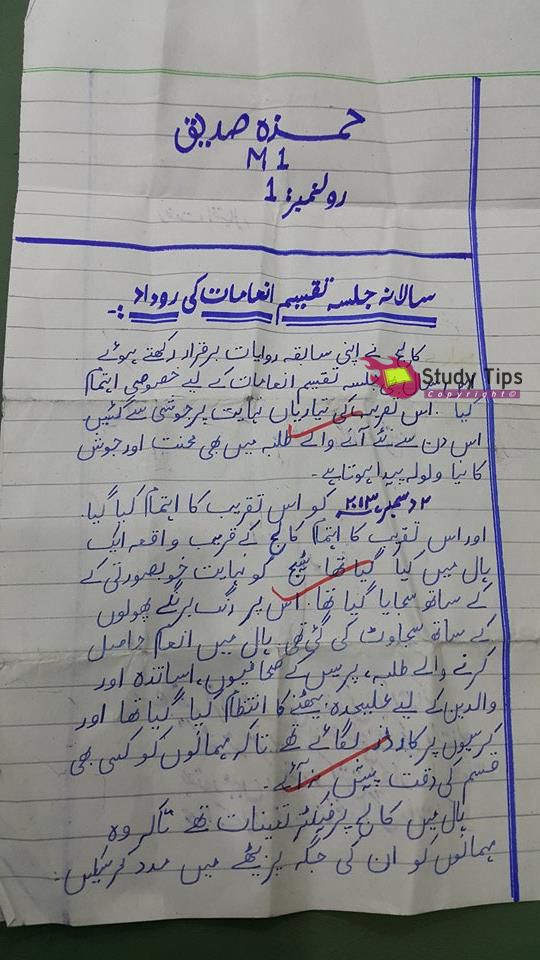 حمزہ صدیق
M 1
رولنمبر: 1
سالانہ جلسہ تقسیم انعامات کی روداد :-
کالج نے اپنی سابقہ روایات برقرار رکھتے ہوئے
جلسہ تقسیم انعامات کے لیے خصوصی اہتمام
Study Tips
Copyright©
کیا۔ اس تقریب کی تیاریاں نہایت پرجوشی سے کئیں
اس دن سے نئے آنے والے طلبہ میں بھی محنت اور جوش
کا نیا ولولہ پیدا ہوتا ہے۔
۲ دسمبر ۲۰۱۳ء کو اس تقریب کا اہتمام کیا گیا۔
اور اس تقریب کا اہتمام کالج کے قریب واقعہ ایک
ہال میں کیا گیا تھا۔ سٹیج کو نہایت خوبصورتی کے
کے ساتھ سجایا گیا تھا۔ اس پر رنگ برنگے پھولوں
کے ساتھ سجاوٹ کی گئی تھی ہال میں انعام حاصل
کرنے والے طلبہ، پریس کے صحافیوں، اساتذہ اور
والدین کے لیے علیحدہ بیٹھنے کا انتظام کیا گیا تھا اور
کرسیوں پر کارڈز لگائے تھے تاکہ مہمانوں کو کسی بھی
قسم کی دقت پیش نہ آئے۔
ہال میں کالج پرفیکٹر تعینات تھے تاکہ وہ
مہمانوں کو ان کی جگہ پر بٹھنے میں مدد کرسکیں۔